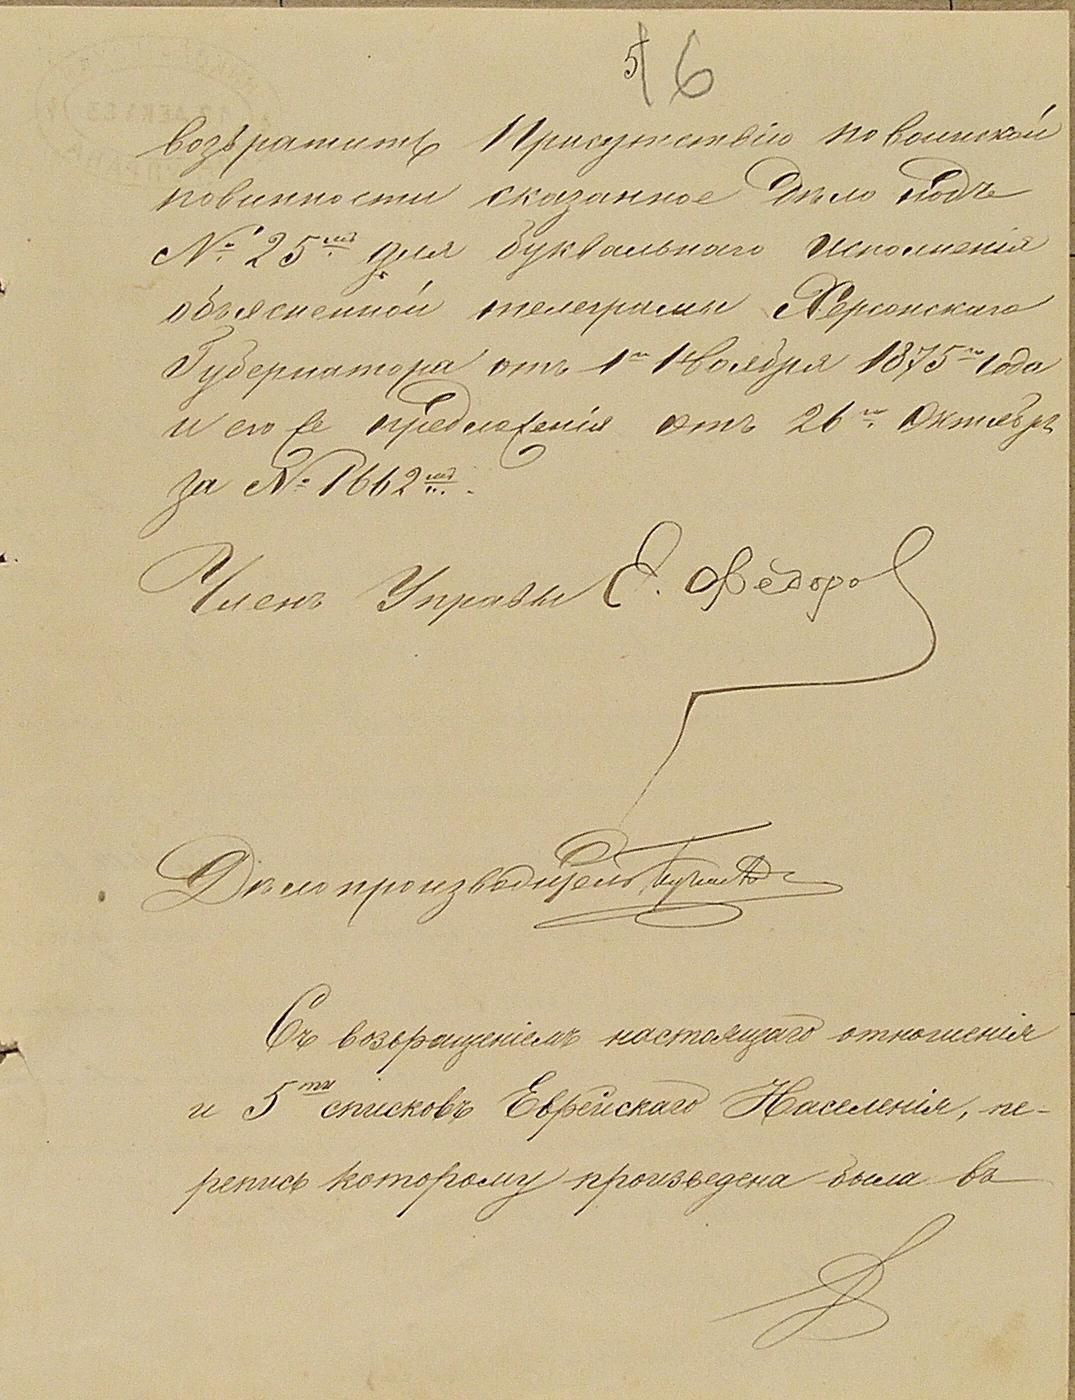 5 6
возвратить Присутствію по воинской
повинности сказанное дѣло подъ
№ 25мъ для буквальнаго исполненія
объясненной телеграмы Херсонскаго
Губернатора отъ 1го Ноября 1875го года
и его же предложенія отъ 26го Октября
за № 1662мъ.
Членъ Управы Е. Федоров
Дѣлопроизводитель
Съ возвращеніемъ настоящаго отношенія
и 5ти списковъ Еврейскаго Населенія, пе-
репись которому произведена была въ